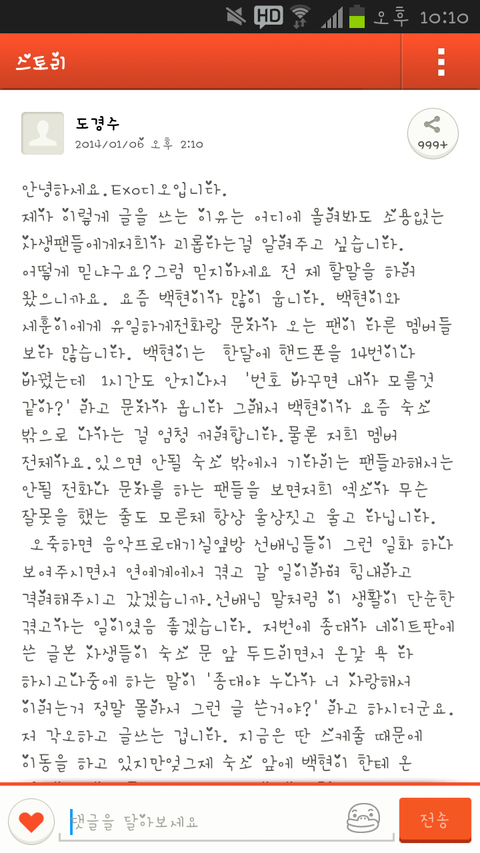 HD 오후 10:10
스토리
도경수
2014/01/06 오후 2:10
999+
안녕하세요.Exo디오입니다.
제가 이렇게 글을 쓰는 이유는 어디에 올려봐도 소용없는
사생팬들에게저희가 괴롭다는걸 알려주고 싶습니다.
어떻게 믿냐구요?그럼 믿지마세요 전 제 할말을 하러
왔으니까요. 요즘 백현이가 많이 웁니다. 백현이와
세훈이에게 유일하게전화랑 문자가 오는 팬이 다른 멤버들
보다 많습니다. 백현이는 한달에 핸드폰을 14번이나
바꿨는데 1시간도 안지나서 '번호 바꾸면 내가 모를것
같아?' 라고 문자가 옵니다 그래서 백현이가 요즘 숙소
밖으로 나가는 걸 엄청 꺼려합니다.물론 저희 멤버
전체가요.있으면 안될 숙소 밖에서 기다리는 팬들과해서는
안될 전화나 문자를 하는 팬들을 보면저희 엑소가 무슨
잘못을 했는 줄도 모른체 항상 울상짓고 울고 다닙니다.
오죽하면 음악프로대기실옆방 선배님들이 그런 일화 하나
보여주시면서 연예계에서 겪고 갈 일이라며 힘내라고
격려해주시고 갔겠습니까.선배님 말처럼 이 생활이 단순한
겪고가는 일이였음 좋겠습니다. 저번에 종대가 네이트판에
쓴 글본 사생들이 숙소 문 앞 두드리면서 온갖 욕 다
하시고나중에 하는 말이 '종대야 누나가 너 사랑해서
이러는거 정말 몰라서 그런 글 쓴거야?' 라고 하시더군요.
저 각오하고 글쓰는 겁니다. 지금은 딴 스케줄 때문에
이동을 하고 있지만엊그제 숙소 앞에 백현이 한테 온
댓글을 달아보세요
전송